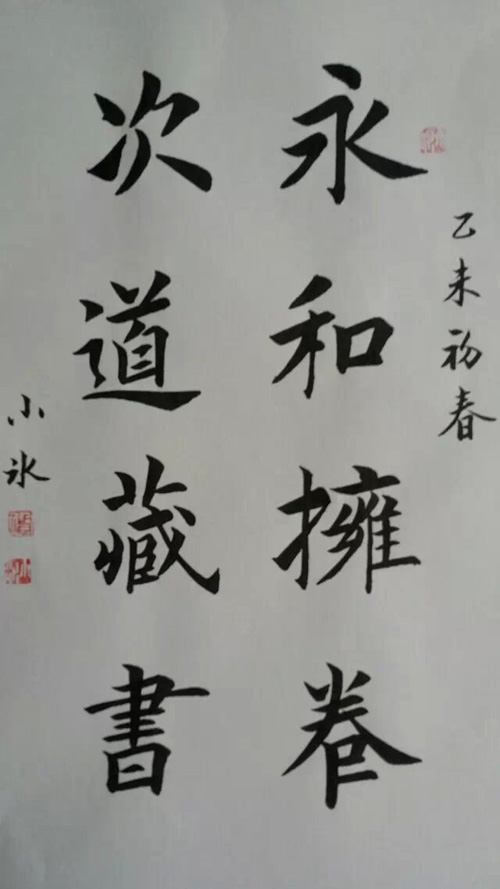 乙未初春
永和擁卷
次道藏書
小冰